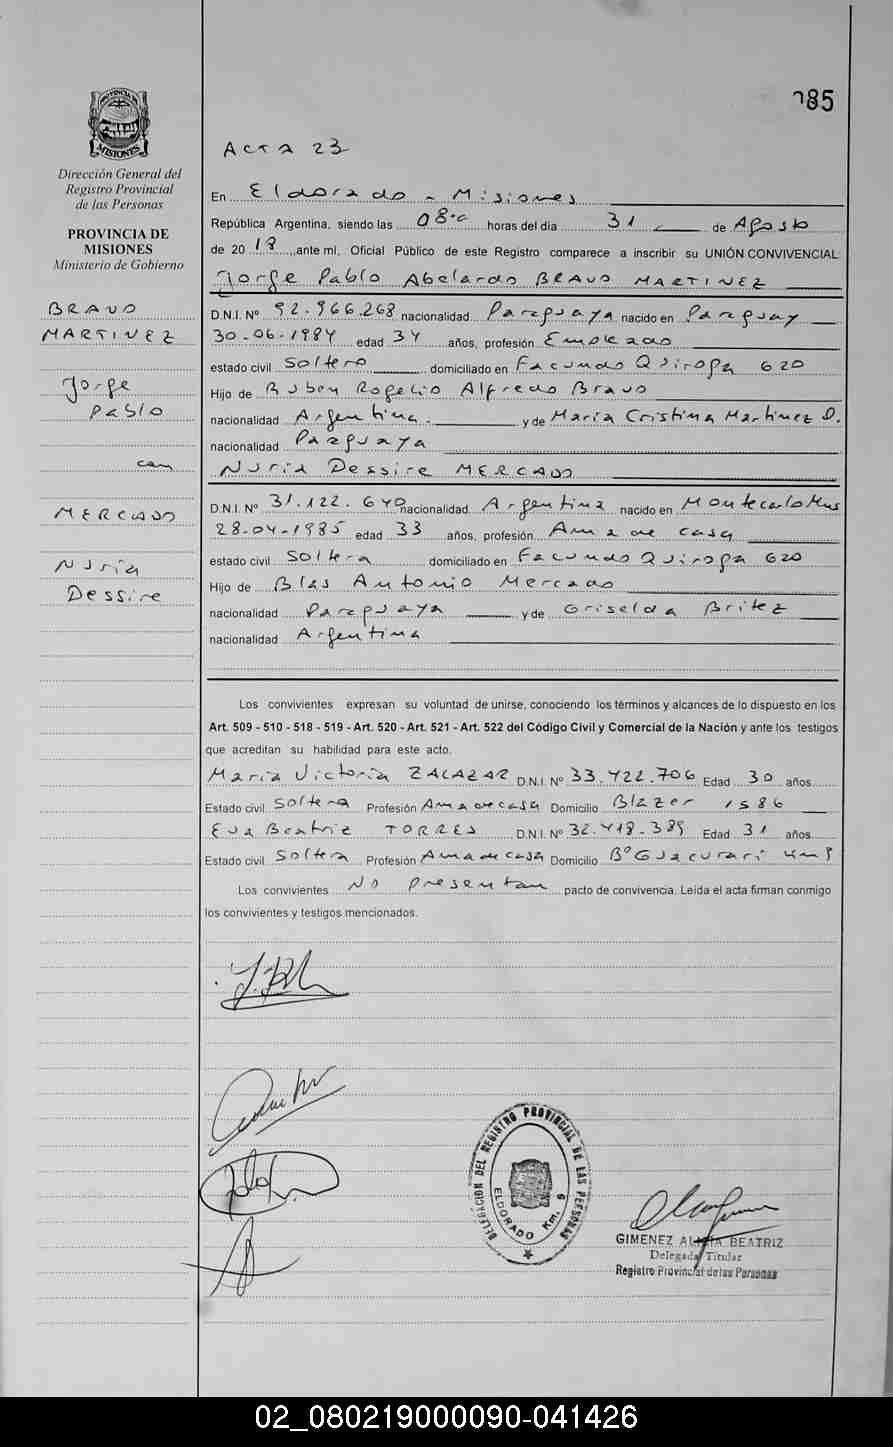 085
PROVINCIA DE
MISIONES
Dirección General del
Registro Provincial
de las Personas
PROVINCIA DE
MISIONES
Ministerio de Gobierno
BRAVO
MARTINEZ
Jorge
Pablo
con
MERCADO
Nuria
Dessire
ACTA 23
En Eldorado - Misiones
República Argentina, siendo las 08.- horas del día 31 de Agosto
de 2018, ante mí, Oficial Público de este Registro comparece a inscribir su UNIÓN CONVIVENCIAL
Jorge Pablo Abelardo BRAVO MARTINEZ
D.N.I. Nº 92.966.268 nacionalidad Paraguaya nacido en Paraguay
30-06-1984 edad 34 años, profesión Empleado
estado civil Soltero domiciliado en Facundo Quiroga 620
Hijo de Ruben Rogelio Alfredo Bravo
nacionalidad Argentina.- y de Maria Cristina Martinez D.
nacionalidad Paraguaya
Nuria Dessire MERCADO
D.N.I. Nº 31.122.640 nacionalidad Argentina nacido en Montecarlo Mnes
28-04-1985 edad 33 años, profesión Ama de casa
estado civil Soltera domiciliado en Facundo Quiroga 620
Hijo de Blas Antonio Mercado
nacionalidad Paraguaya y de Griselda Britez
nacionalidad Argentina
Los convivientes expresan su voluntad de unirse, conociendo los términos y alcances de lo dispuesto en los
Art. 509 - 510 - 518 - 519 - Art. 520 - Art. 521 - Art. 522 del Código Civil y Comercial de la Nación y ante los testigos
que acreditan su habilidad para este acto.
Maria Victoria ZALAZAR D.N.I. Nº 33.422.706 Edad 30 años
Estado civil Soltera Profesión Ama de casa Domicilio Blazer 1586
Eva Beatriz TORRES D.N.I. Nº 32.418.389 Edad 31 años
Estado civil Soltera Profesión Ama de casa Domicilio Bº Guacurari Km 9
Los convivientes No presentan pacto de convivencia. Leída el acta firman conmigo
los convivientes y testigos mencionados.
DELEGACION DEL REGISTRO PROVINCIAL DE LAS PERSONAS
ELDORADO Km. 9
GIMENEZ ALICIA BEATRIZ
Delegada Titular
Registro Provincial de las Personas
02_080219000090-041426